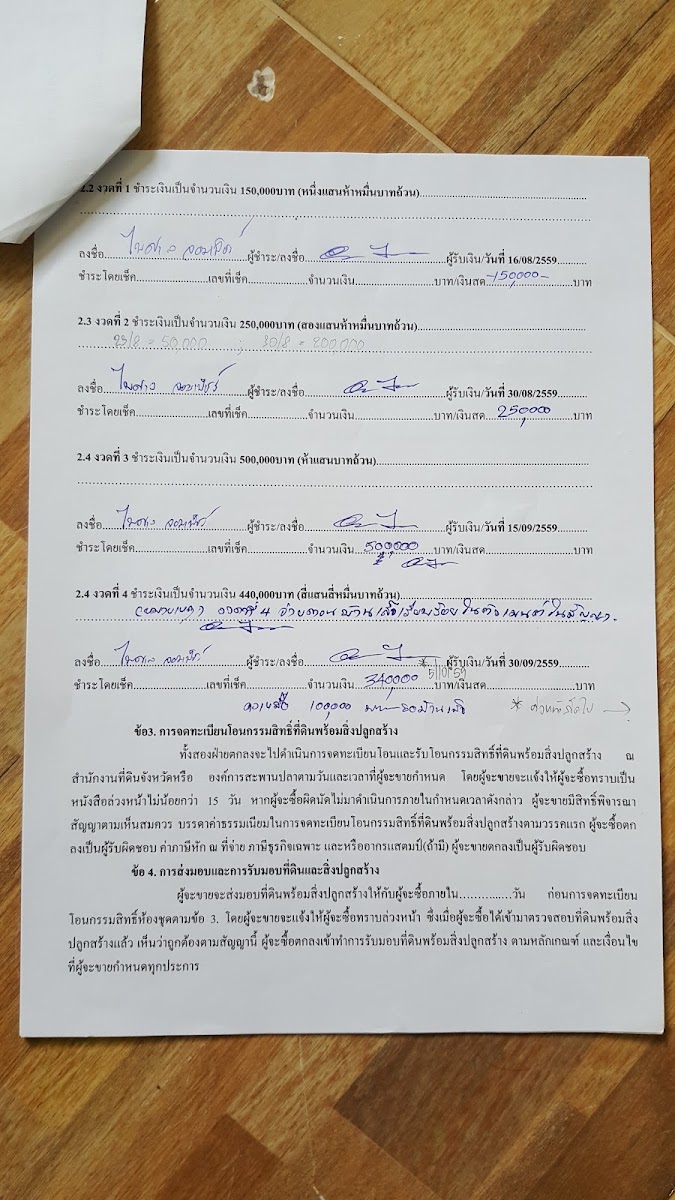 2.2 งวดที่ 1 ชำระเงินเป็นจำนวนเงิน 150,000บาท (หนึ่งแสนห้าหมื่นบาทถ้วน)
ลงชื่อ ผู้ชำระ/ลงชื่อ ผู้รับเงิน/วันที่ 16/08/2559
ชำระโดยเช็ค เลขที่เช็ค จำนวนเงิน บาท/เงินสด 150000- บาท
2.3 งวดที่ 2 ชำระเงินเป็นจำนวนเงิน 250,000บาท (สองแสนห้าหมื่นบาทถ้วน)
23/8 = 50,000 ; 30/8 = 200,000
ลงชื่อ ผู้ชำระ/ลงชื่อ ผู้รับเงิน/วันที่ 30/08/2559
ชำระโดยเช็ค เลขที่เช็ค จำนวนเงิน บาท/เงินสด 250,000 บาท
2.4 งวดที่ 3 ชำระเงินเป็นจำนวนเงิน 500,000บาท (ห้าแสนบาทถ้วน)
ลงชื่อ ผู้ชำระ/ลงชื่อ ผู้รับเงิน/วันที่ 15/09/2559
ชำระโดยเช็ค เลขที่เช็ค จำนวนเงิน 500,000 บาท/เงินสด บาท
2.4 งวดที่ 4 ชำระเงินเป็นจำนวนเงิน 440,000บาท (สี่แสนสี่หมื่นบาทถ้วน)
(หมายเหตุ) งวดที่ 4 จ่ายตอนบ้านเสร็จเรียบร้อย ในสัญญา.
ลงชื่อ ผู้ชำระ/ลงชื่อ ผู้รับเงิน/วันที่ 30/09/2559
* 5/10/59
ชำระโดยเช็ค เลขที่เช็ค จำนวนเงิน 340,000 บาท/เงินสด บาท
คงเหลือ 100,000 บาท รอบ้านเสร็จ *
ข้อ3. การจดทะเบียนโอนกรรมสิทธิ์ที่ดินพร้อมสิ่งปลูกสร้าง
ทั้งสองฝ่ายตกลงจะไปดำเนินการจดทะเบียนโอนและรับโอนกรรมสิทธิ์ที่ดินพร้อมสิ่งปลูกสร้าง ณ
สำนักงานที่ดินจังหวัดหรือ องค์การสะพานปลาตามวันและเวลาที่ผู้จะขายกำหนด โดยผู้จะขายจะแจ้งให้ผู้จะซื้อทราบเป็น
หนังสือล่วงหน้าไม่น้อยกว่า 15 วัน หากผู้จะซื้อผิดนัดไม่มาดำเนินการภายในกำหนดเวลาดังกล่าว ผู้จะขายมีสิทธิ์พิจารณา
สัญญาตามเห็นสมควร บรรดาค่าธรรมเนียมในการจดทะเบียนโอนกรรมสิทธิ์ที่ดินพร้อมสิ่งปลูกสร้างตามวรรคแรก ผู้จะซื้อตก
ลงเป็นผู้รับผิดชอบ ค่าภาษีหัก ณ ที่จ่าย ภาษีธุรกิจเฉพาะ และหรืออากรแสตมป์(ถ้ามี) ผู้จะขายตกลงเป็นผู้รับผิดชอบ
ข้อ 4. การส่งมอบและการรับมอบที่ดินและสิ่งปลูกสร้าง
ผู้จะขายจะส่งมอบที่ดินพร้อมสิ่งปลูกสร้างให้กับผู้จะซื้อภายใน..............วัน ก่อนการจดทะเบียน
โอนกรรมสิทธิ์ห้องชุดตามข้อ 3. โดยผู้จะขายจะแจ้งให้ผู้จะซื้อทราบล่วงหน้า ซึ่งเมื่อผู้จะซื้อได้เข้ามาตรวจสอบที่ดินพร้อมสิ่ง
ปลูกสร้างแล้ว เห็นว่าถูกต้องตามสัญญานี้ ผู้จะซื้อตกลงเข้าทำการรับมอบที่ดินพร้อมสิ่งปลูกสร้าง ตามหลักเกณฑ์ และเงื่อนไข
ที่ผู้จะขายกำหนดทุกประการ